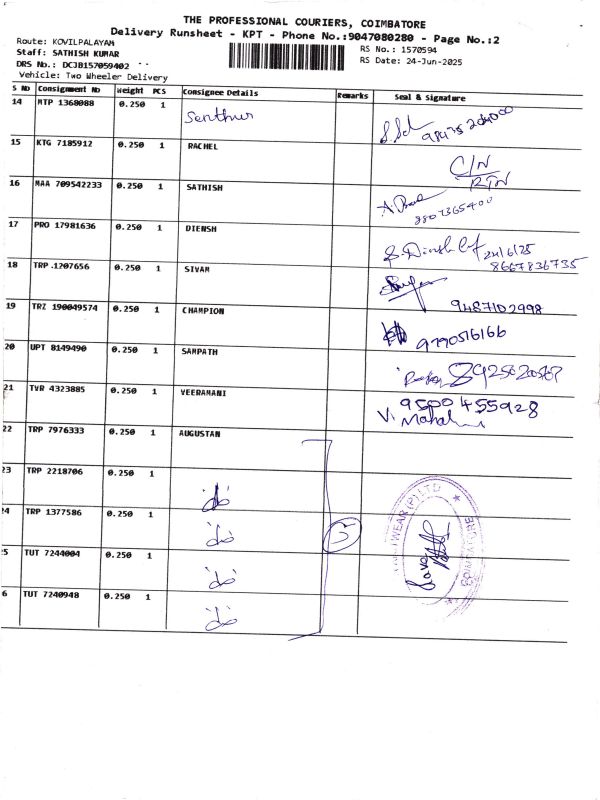 THE PROFESSIONAL COURIERS, COIMBATORE
Delivery Runsheet - KPT - Phone No.:9047080280 - Page No.:2
Route: KOVILPALAYAM
Staff: SATHISH KUMAR
DRS No.: DCJB157059402
Vehicle: Two Wheeler Delivery
RS No.: 1570594
RS Date: 24-Jun-2025
S No Consignment No Weight PCS Consignee Details Remarks Seal & Signature
14 MTP 1368088 0.250 1 Senthur
15 KTG 7185912 0.250 1 RACHEL C/N RTN
16 MAA 709542233 0.250 1 SATHISH 8807365400
17 PRO 17981636 0.250 1 DIENSH 24/6/25 8667836735
18 TRP 1207656 0.250 1 SIVAM 9487102998
19 TRZ 190049574 0.250 1 CHAMPION 9790516166
20 UPT 8149490 0.250 1 SAMPATH
21 TVR 4323885 0.250 1 VEERAMANI 9500455928
22 TRP 7976333 0.250 1 AUGUSTAN
23 TRP 2218706 0.250 1 do
24 TRP 1377586 0.250 1 do 5
25 TUT 7244004 0.250 1 do
26 TUT 7240948 0.250 1 do
WEAR (P) LTD
COIMBATORE